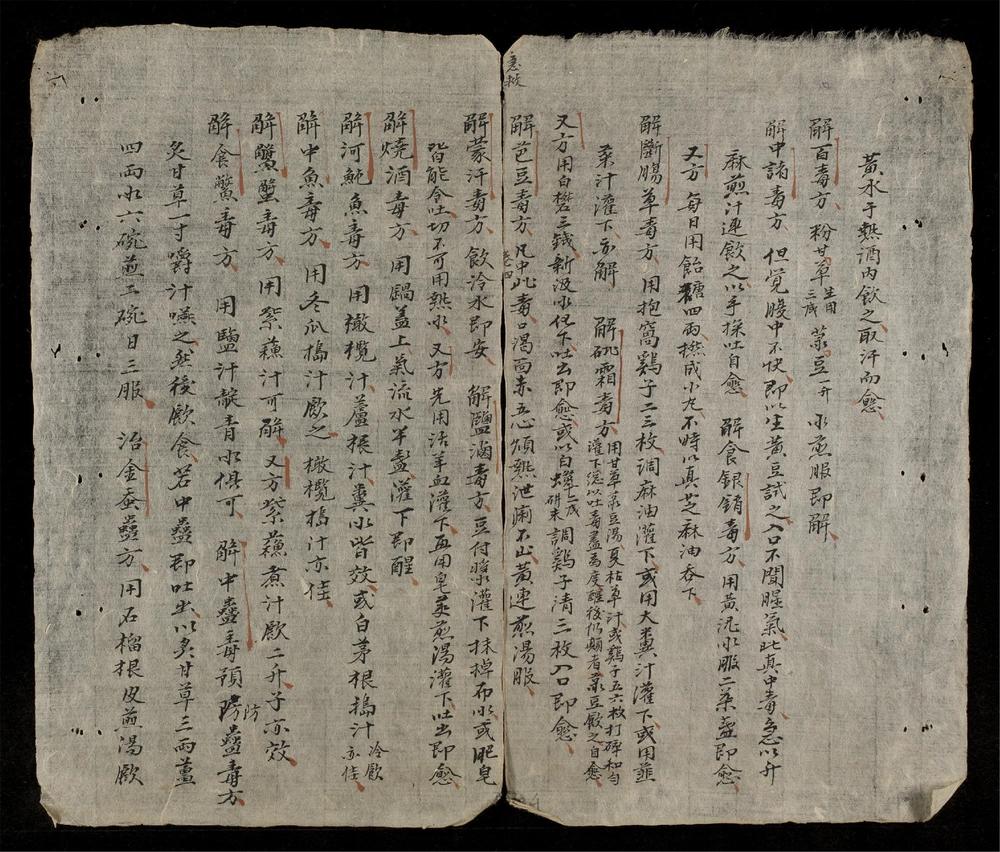 黃水于熱酒內飲之取汗而愈
解百毒方 粉甘草生用三錢 菉豆一升 水煎服即解
解中諸毒方 但覚腹中不快即以生黃豆試之入口不聞腥氣此真中毒急以升
麻煎汁連飲之以手探吐自愈 解食銀銷毒方 用黃泥水服二茶盞即愈
又方 每日用飴糖四兩撚成小丸不時以真芝麻油吞下
解斷腸草毒方 用抱窩鷄子二三枚調麻油灌下或用大糞汁灌下或用韮
菜汁灌下亦解 解砒霜毒方 用甘草菉豆湯夏枯草汁或鷄子五六枚打碎和勻灌下總以吐毒盡為度醒後仍頻者菉豆飲之自愈
又方用白礬三錢新汲水化下吐出即愈或以白蠟三錢研末調鷄子清三枚入口即愈
急救
解芭豆毒方 凡中此毒口渴面赤五心煩熱泄痢不止黃連煎湯服
卷四
解蒙汗毒方 飲冷水即安 解鹽滷毒方 豆付漿灌下抹棹布水或肥皂
皆能令吐切不可用熱水 又方 先用活羊血灌下再用皂莢煎湯灌下吐出即愈
解燒酒毒方 用鍋盖上氣流水半盞灌下即醒
解河鲀魚毒方 用橄欖汁蘆根汁糞水皆效或白茅根搗汁冷飲亦佳
解中魚毒方 用冬瓜搗汁飲之 橄欖搗汁亦佳
解鱉蟹毒方 用紫蘓汁可解 又方 紫蘓煮汁飲二升子亦效
解食鱉毒方 用鹽汁靛青水俱可 解中蠱毒預防蠱毒方
防
炙甘草一寸嚼汁嚥之然後飲食若中蠱即吐出以炙甘草三兩薑
四兩水六碗煎三碗日三服 治金蚕蠱方 用石榴根皮煎湯飲